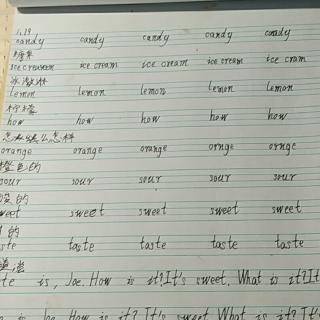 1.19
candy candy candy candy candy
糖果
ice cream ice cream ice cream ice cream
冰激淋
lemon lemon lemon lemon lemon
柠檬
how how how how how
怎么样
orange orange orange ornge ornge
橙色的
sour sour sour sour sour
酸的
weet sweet sweet sweet sweet
的
ste taste taste taste taste
味道
te is, Joe. How is it? It's sweet. What is it? It
is Joe How is it? It's sweet What is it?